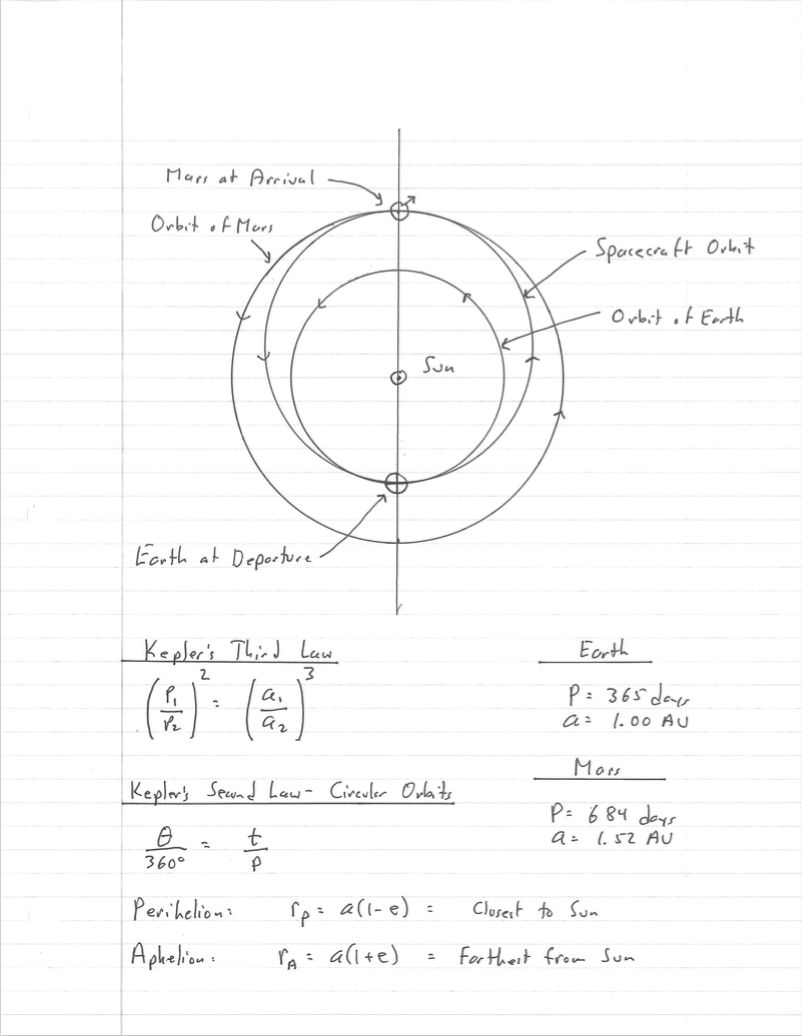 Mars at Arrival
Orbit of Mars
Spacecraft Orbit
Orbit of Earth
Sun
Earth at Departure
Kepler's Third Law
(P₁/P₂)² = (a₁/a₂)³
Earth
P = 365 days
a = 1.00 AU
Mars
P = 684 days
a = 1.52 AU
Kepler's Second Law - Circular Orbits
θ/360° = t/P
Perihelion: r_P = a(1-e) = Closest to Sun
Aphelion: r_A = a(1+e) = Farthest from Sun